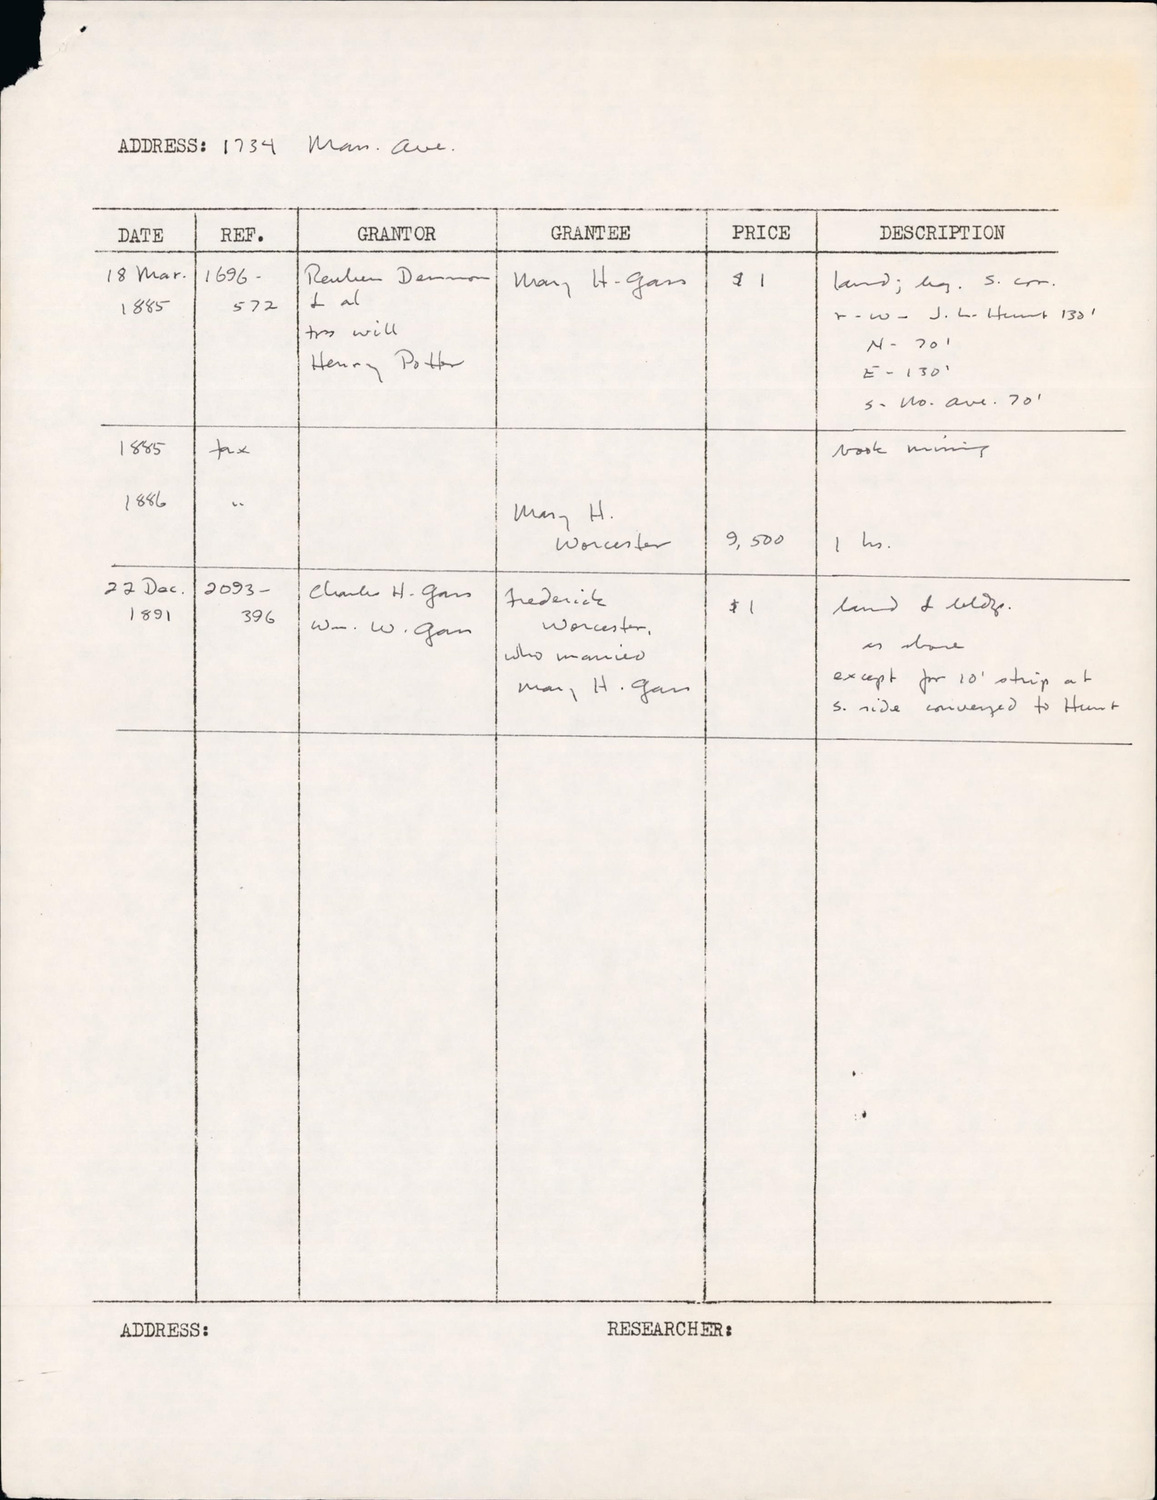 ADDRESS: 1734 Mass. Ave.
DATE REF. GRANTOR GRANTEE PRICE DESCRIPTION
18 Mar. 1696- Reuben Demmon Mary H. Gass $1 land; beg. s. cor.
1885 572 & al r-w- J. L. Hunt 130'
trs will N- 70'
Henry Potter E-130'
S- No. ave. 70'
1885 tax book missing
1886 "
Mary H.
Worcester 9,500 1 hs.
22 Dec. 2093- Charles H. Gass Frederick $1 land & bldgs.
1891 396 Wm. W. Gass Worcester, as above
who married except for 10' strip at
Mary H. Gass s. side conveyed to Hunt
ADDRESS: RESEARCHER: